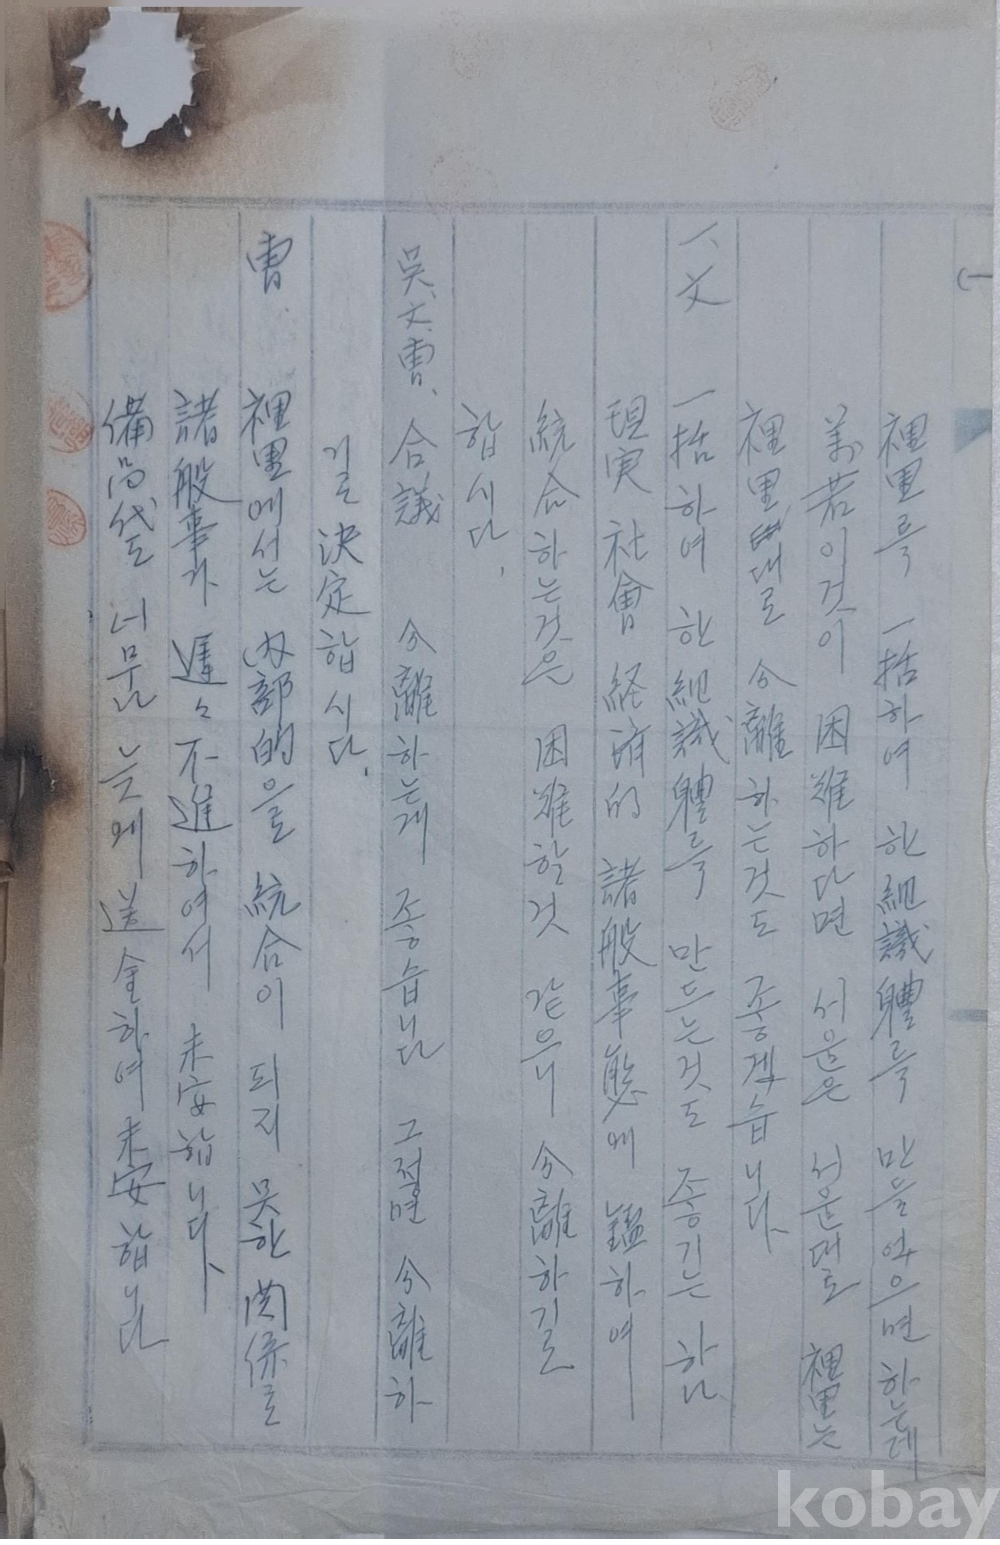 裡里를 一括하여 한 組織體를 만들었으면 하는데
萬若 이것이 困難하다면 서운은 서운대로 裡里는
裡里대로 分離하는것도 좋겠습니다
一、文 一括하여 한 組織體를 만드는것도 좋기는 하나
現実 社會 経済的 諸般事態에 鑑하여
統合하는것은 困難할것 같으니 分離하기로
합시다.
吳、文、曺、合議 分離하는게 좋습니다 그러면 分離하
기로 決定합시다.
曺、裡里에서는 內部的을 統合이 되지 못한 関係로
諸般事가 遲々不進하여서 未安합니다
備品代도 너무나 늦게 送金하여 未安합니다
kobay